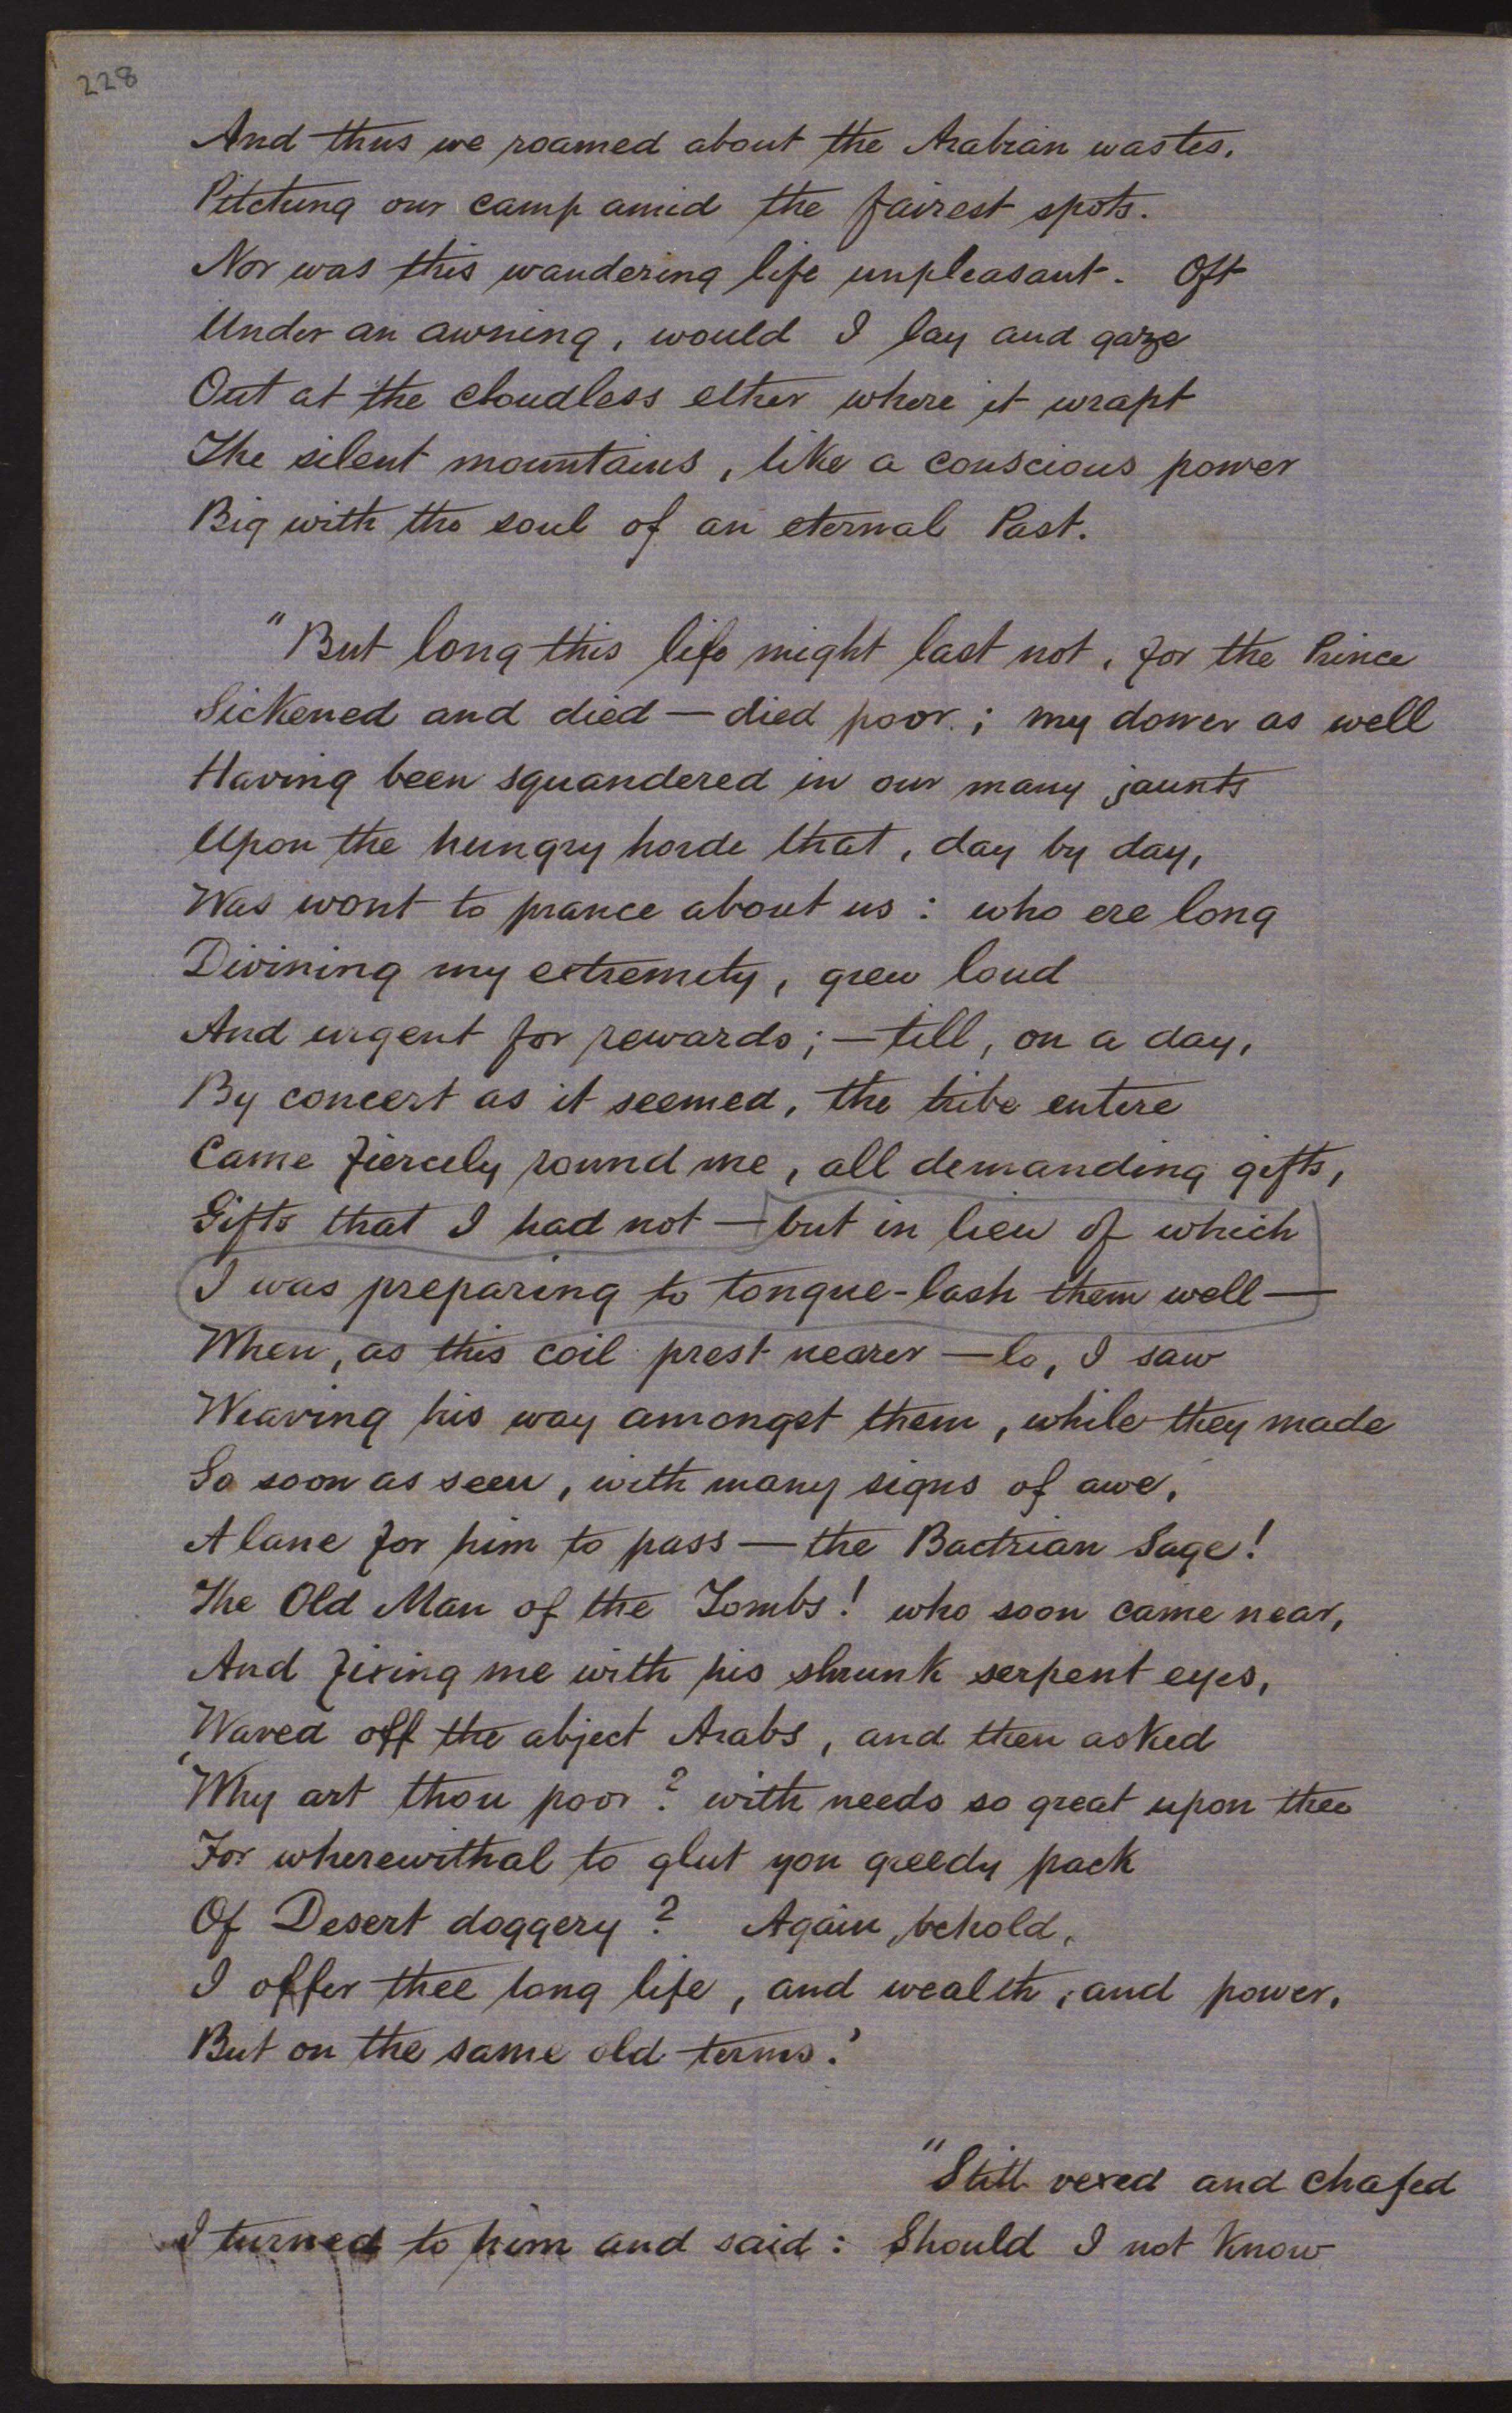 228
And thus we roamed about the Arabian wastes.
Pitching our camp amid the fairest spots.
Nor was this wandering life unpleasant. Oft
Under an awning, would I lay and gaze
Out at the cloudless ether where it wrapt
The silent mountains, like a conscious power
Big with the soul of an eternal Past.
"But long this life might last not, for the Prince
Sickened and died — died poor; my dower as well
Having been squandered in our many jaunts
Upon the hungry horde that, day by day,
Was wont to prance about us: who ere long
Divining my extremity, grew loud
And urgent for rewards; — till, on a day,
By concert as it seemed, the tribe entire
Came fiercely round me, all demanding gifts,
Gifts that I had not — but in lieu of which
I was preparing to tongue-lash them well —
When, as this coil prest nearer — lo, I saw
Weaving his way amongst them, while they made
So soon as seen, with many signs of awe,
A lane for him to pass — the Bactrian Sage!
The Old Man of the Tombs! who soon came near,
And fixing me with his shrunk serpent eyes,
Waved off the abject Arabs, and then asked
'Why art thou poor? with needs so great upon thee
For wherewithal to glut yon greedy pack
Of Desert doggery? Again, behold,
I offer thee long life, and wealth, and power,
But on the same old terms.'
"Still vexed and chafed
I turned to him and said: Should I not know